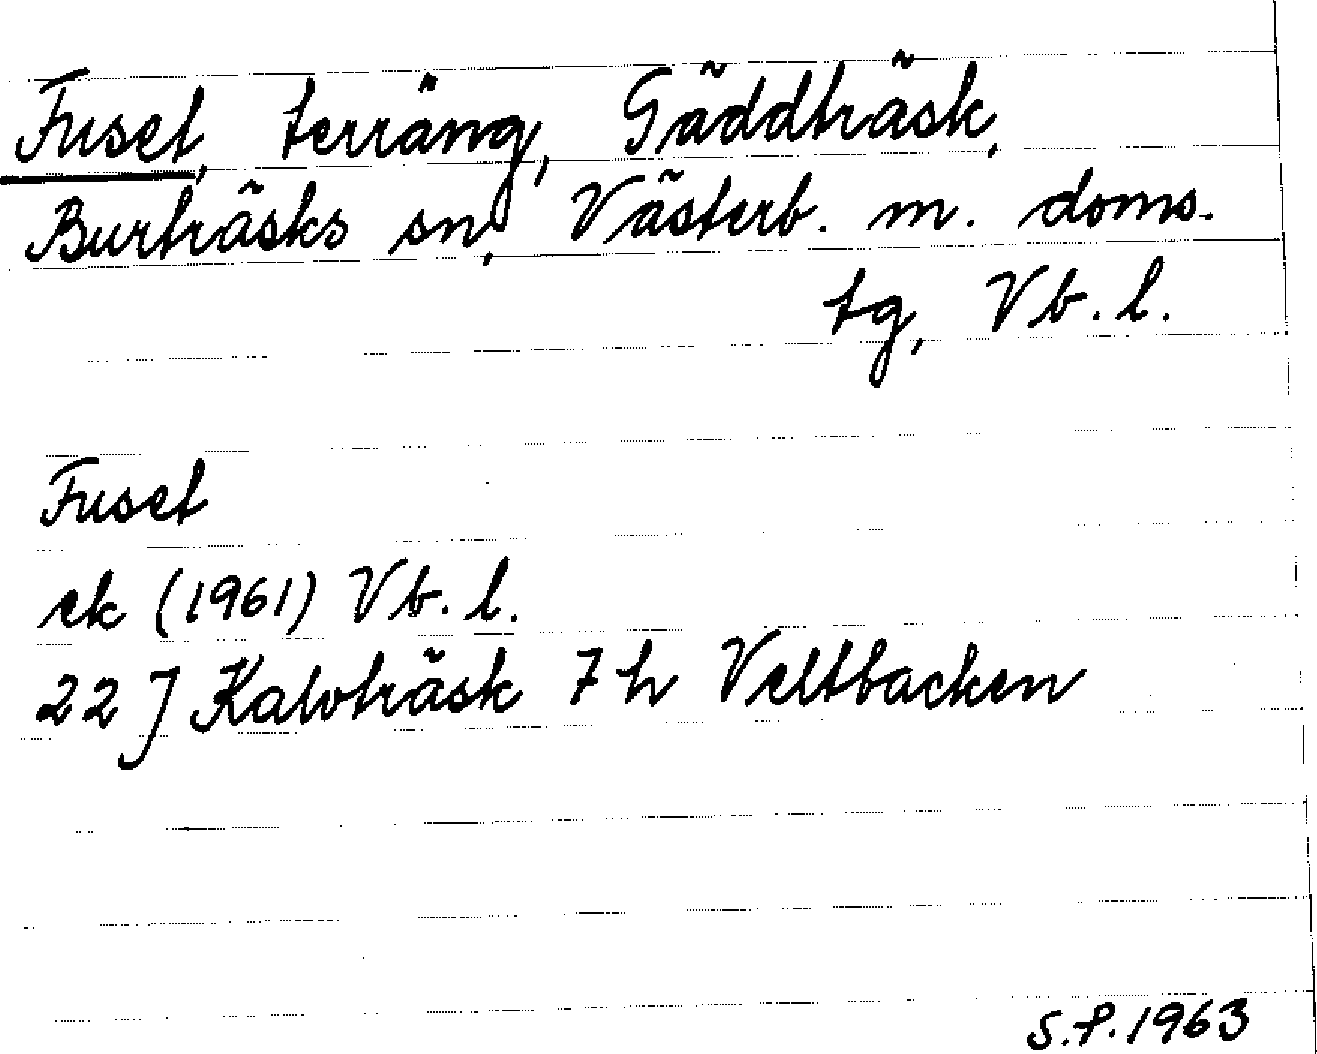 Fuset, terräng, Gäddträsk,
Burträsks sn, Västerb. m. doms.
tg, Vb. l.
Fuset
ek (1961) Vb. l.
22 J Kalvträsk 7 h Veltbacken
S.P. 1963